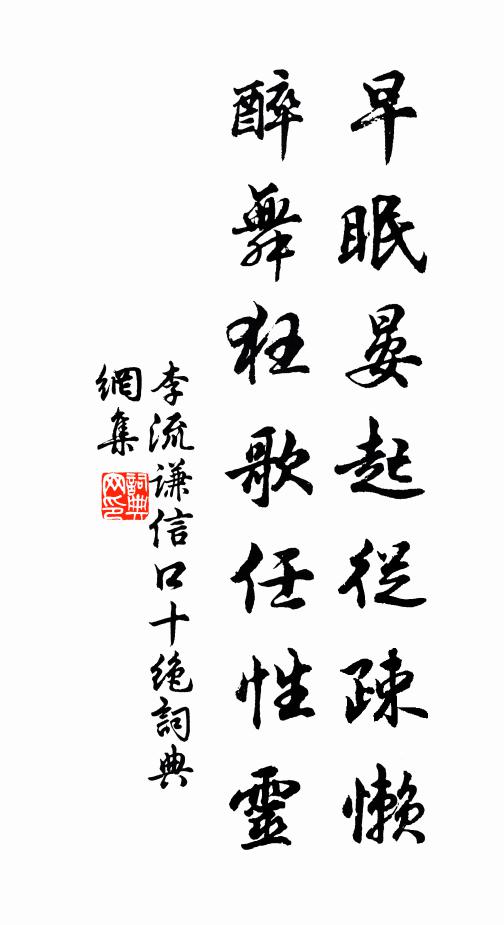 早眠晏起從疎懶
醉舞狂歌任性靈
李流谦信口十绝詞典
網集
詞典网印